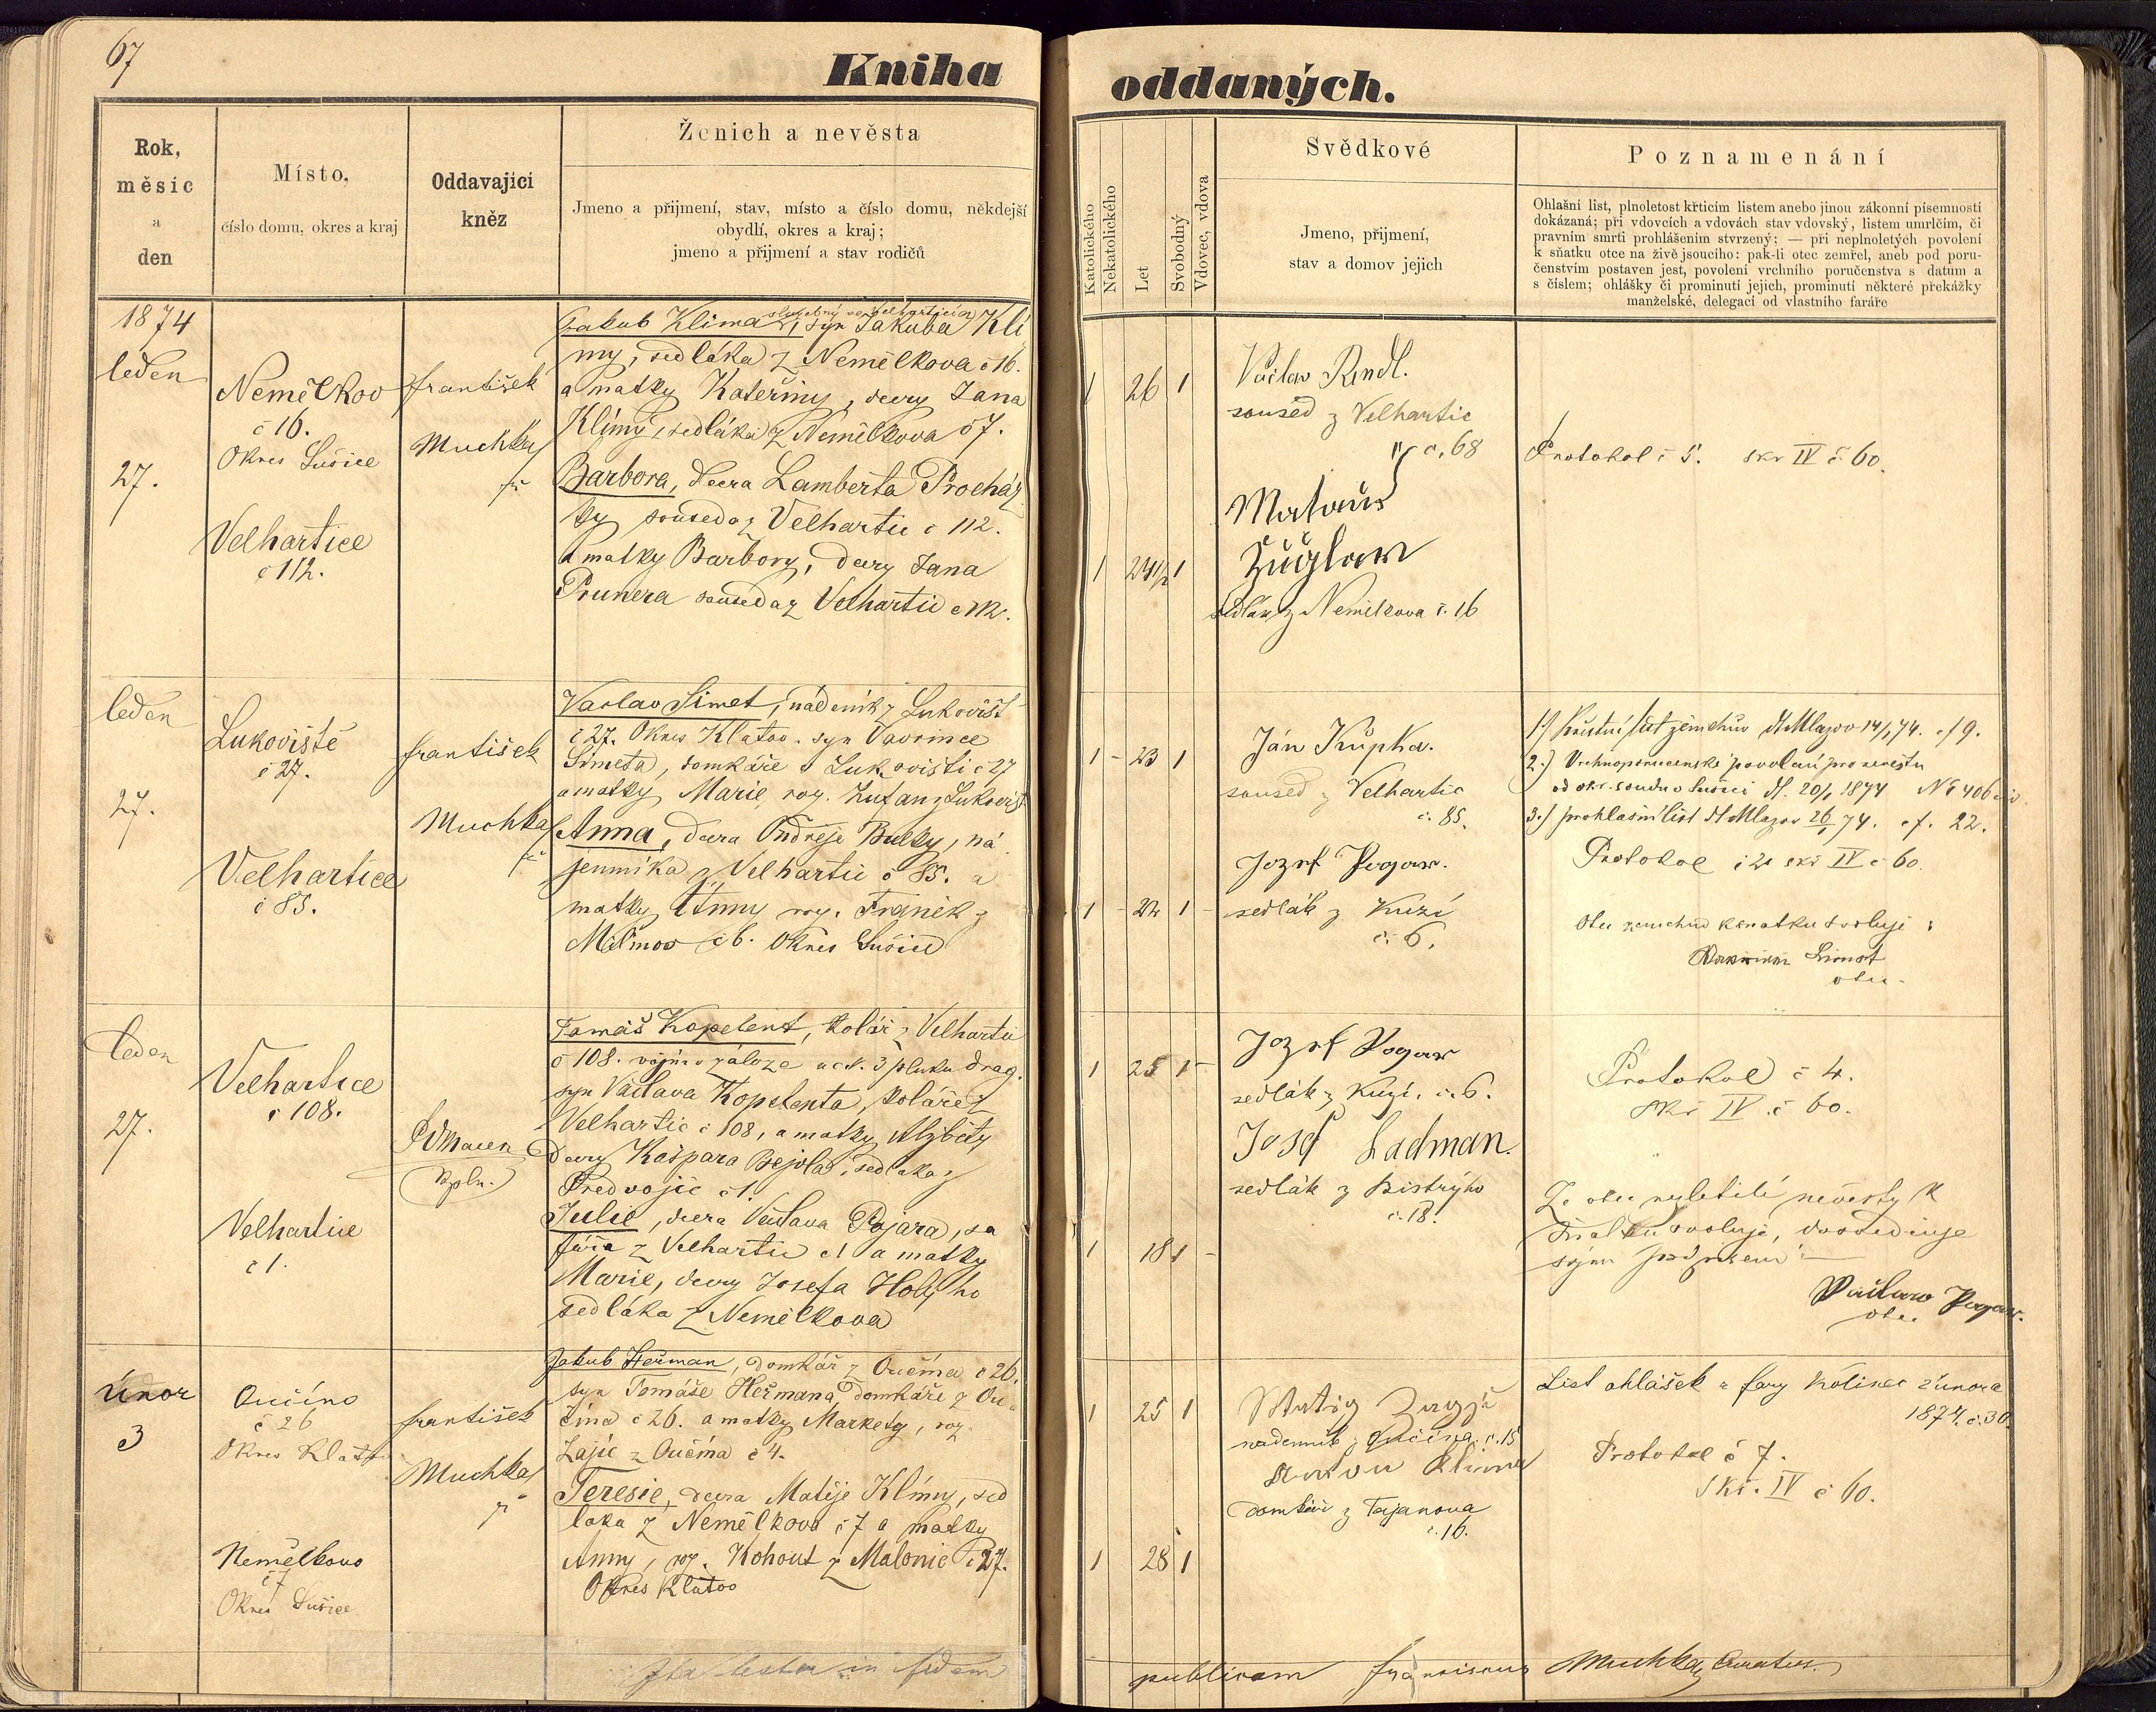 67
Kniha
oddaných.
Rok,
měsíc
a
den
Místo,
číslo domu, okres a kraj
Oddavající
kněz
Ženich a nevěsta
Jmeno a přijmení, stav, místo a číslo domu, někdejší
obydlí, okres a kraj;
jmeno a přijmení a stav rodičů
Katolického
Nekatolického
Let
Svobodný
Vdovec, vdova
Svědkové
Jmeno, přijmení,
stav a domov jejich
Poznamenání
Ohlašní list, plnoletost křticím listem anebo jinou zákonní písemností
dokázaná; při vdovcích a vdovách stav vdovský, listem umrlčím, či
pravním smrti prohlášením stvrzený; — při neplnoletých povolení
k sňatku otce na živě jsoucího: pak-li otec zemřel, aneb pod poru-
čenstvím postaven jest, povolení vrchního poručenstva s datum a
s číslem; ohlášky či prominutí jejich, prominutí některé překážky
manželské, delegací od vlastního faráře
1874
leden
27.
Nemělkov
č 16.
Okres Sušice
Velhartice
č 112.
František
Muchka
Jakub Klima, syn Jakuba Klí
my, sedláka z Nemělkova č 16.
a matky Kateřiny, dcery Jana
Klímy, sedláka z Nemělkova č 7.
Barbora, dcera Lamberta Procház
ky souseda z Velhartic č 112.
a matky Barbory, dcery Jana
Prunera souseda z Velhartic
1 26 1
1 24 1/2 1
Václav Rendl.
soused z Velhartic
č. 68
Matouš
sedlák z Nemělkova č. 16
Protokol č 5. skř IV č 60.
leden
27.
Lukoviště
č 27.
Velhartice
č 85.
František
Muchka
Vaclav Simet, nádeník z Lukovišť
č 27. Okres Klatov. syn Vavřince
Simeta, domkáře v Lukovišti č 27
a matky Marie, roz. Zufan z Lukovišť
Anna, dcera Ondřeje Bulky, ná
jemníka z Velhartic č 85. a
matky Anny roz. Franěk z
č 6. Okres Sušice
1 - 23 1
1 - 24 1 -
Ján Krůpka.
soused z Velhartic
č. 85.
Jozef Pogar.
sedlák z Kuzí
č. 6.
1.) Křestní list ženichův
2.) Vrchnoporučenské povolení pro nevěstu
od okr. soudu v Sušici
3.) prohlašní list
Protokol č 2 skř IV č 60.
Otec ženichův k sňatku svoluje:
Simet
otec.
leden
27.
Velhartice
č 108.
Velhartice
č 1.
Tomáš Kopelent, kolář z Velhartic
č 108. vojín v záloze u c.k. 3 pluku drag.
syn Václava Kopelenta, koláře z
Velhartic č 108, a matky Alžběty
dcery Kašpara Bejvla, sedláka z
Předvojic č 1.
Julie, dcera Václava Pojara, sa
fáře z Velhartic č 1 a matky
Marie, dcery Josefa Holýho
sedláka z Nemělkova
1 25 1 -
1 18 1 -
Jozef Pogar
sedlák z Kuzí. č. 6.
Josef Ladman.
sedlák z Bistrýho
č. 18.
Protokol č 4.
skř IV. č 60.
Že otec nezletilé nevěsty k
sňatku svoluje, dosvědčuje
svým podpisem:
Václav Pogar.
otec
únor
3
Oučíno
č 26
Okres Klatov
Nemělkovo
č 7
Okres Sušice
František
Muchka
Jakub Heřman, domkář z Oučína č 26.
syn Tomáše Heřmana, domkáře z Ou
čína č 26. a matky Markety, roz.
Zajíc z Oučína č 4.
Teresie, dcera Matěje Klímy, sed
láka z Nemělkova č 7 a matky
Anny, roz. Kohout z Malonic č 27.
Okres Klatov
1 25 1
1 28 1
nadenník z Oučína. č. 15
Anton Klima
domkář z Tajanova
č. 16.
List ohlášek z fary Kolinec 2 února
1874. č. 30.
Protokol č 7.
Skř. IV č 60.
Ita testor in fidem
publicam Franciscus Muchka, Curatus.